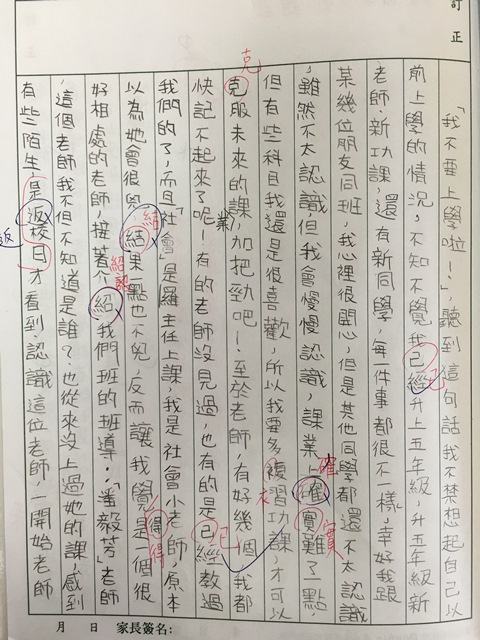 訂正
「我不要上學啦！」,聽到這句話我不禁想起自己以
前上學的情況,不知不覺我已經升上五年級,升五年級新
老師、新功課,還有新同學,每一件事都很不一樣,幸好我跟
某幾位朋友同班,我心裡很開心,但是其他同學都還不太認識
,雖然不太認識,但我會慢慢認識,課業確實難了一點,
但有些科目我還是很喜歡,所以我要多複習功課,才可以
克服未來的課業,加把勁吧！至於老師,有好幾個我都
快記不起來了呢！有的老師沒見過,也有的是已經教過
我們的了,而且「社會」是羅主任上課,我是社會小老師,原本
以為她會很兇,結果一點也不兇,反而讓我覺得是一個很
好相處的老師,接著介紹我們班的班導:「潘毅芳」老師
,這個老師我不但不知道是誰?也從來沒上過她的課,感到
有些陌生,是返校日才看到、認識這位老師,一開始老師
克
已
確
實
結
紹
得
返
月 日 家長簽名: